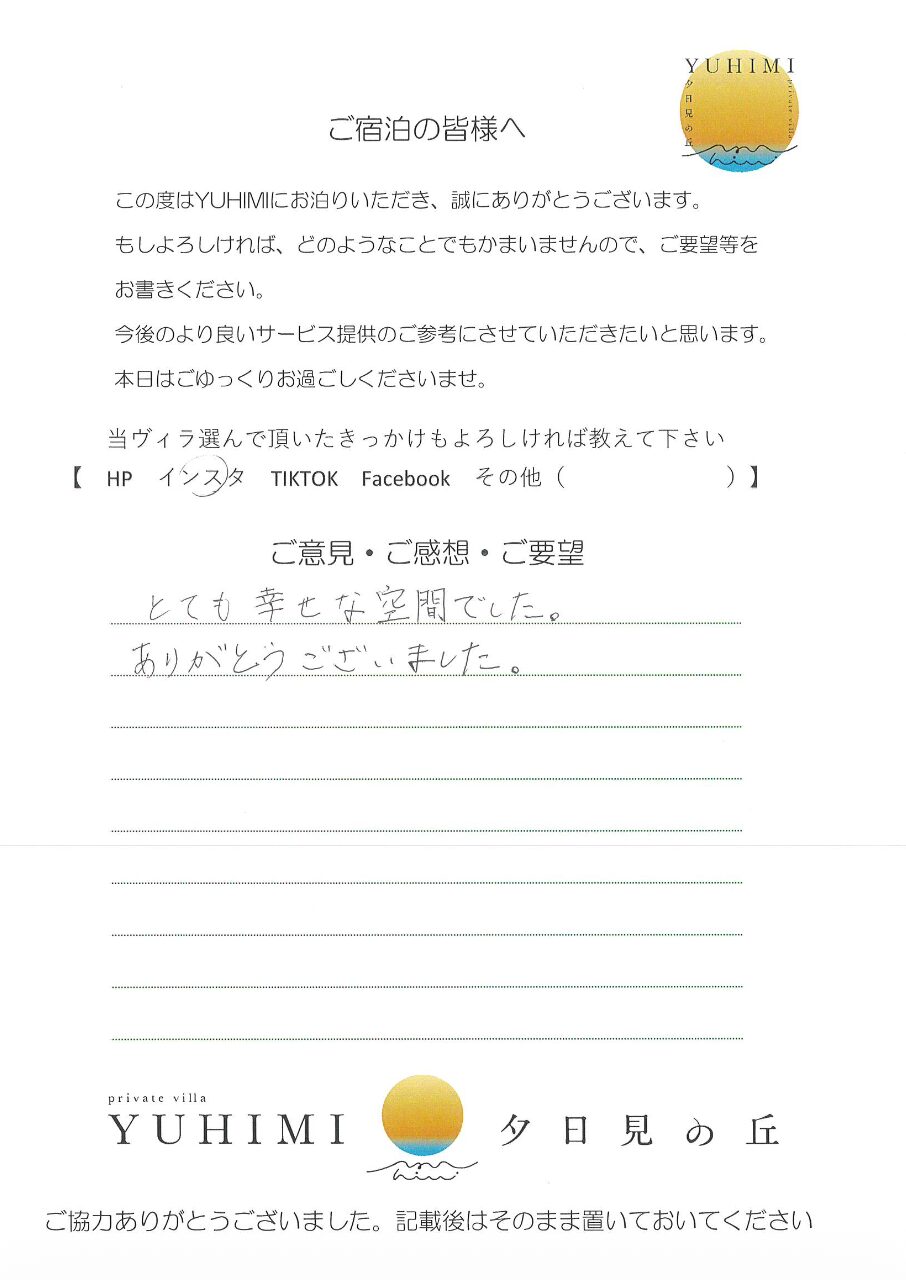 YUHIMI
夕日見の丘
private villa
ご宿泊の皆様へ
この度はYUHIMIにお泊りいただき、誠にありがとうございます。
もしよろしければ、どのようなことでもかまいませんので、ご要望等を
お書きください。
今後のより良いサービス提供のご参考にさせていただきたいと思います。
本日はごゆっくりお過ごしくださいませ。
当ヴィラ選んで頂いたきっかけもよろしければ教えて下さい
【 HP インスタ TIKTOK Facebook その他（ ）】
ご意見・ご感想・ご要望
とても幸せな空間でした。
ありがとうございました。
private villa
YUHIMI 夕日見の丘
ご協力ありがとうございました。記載後はそのまま置いておいてください